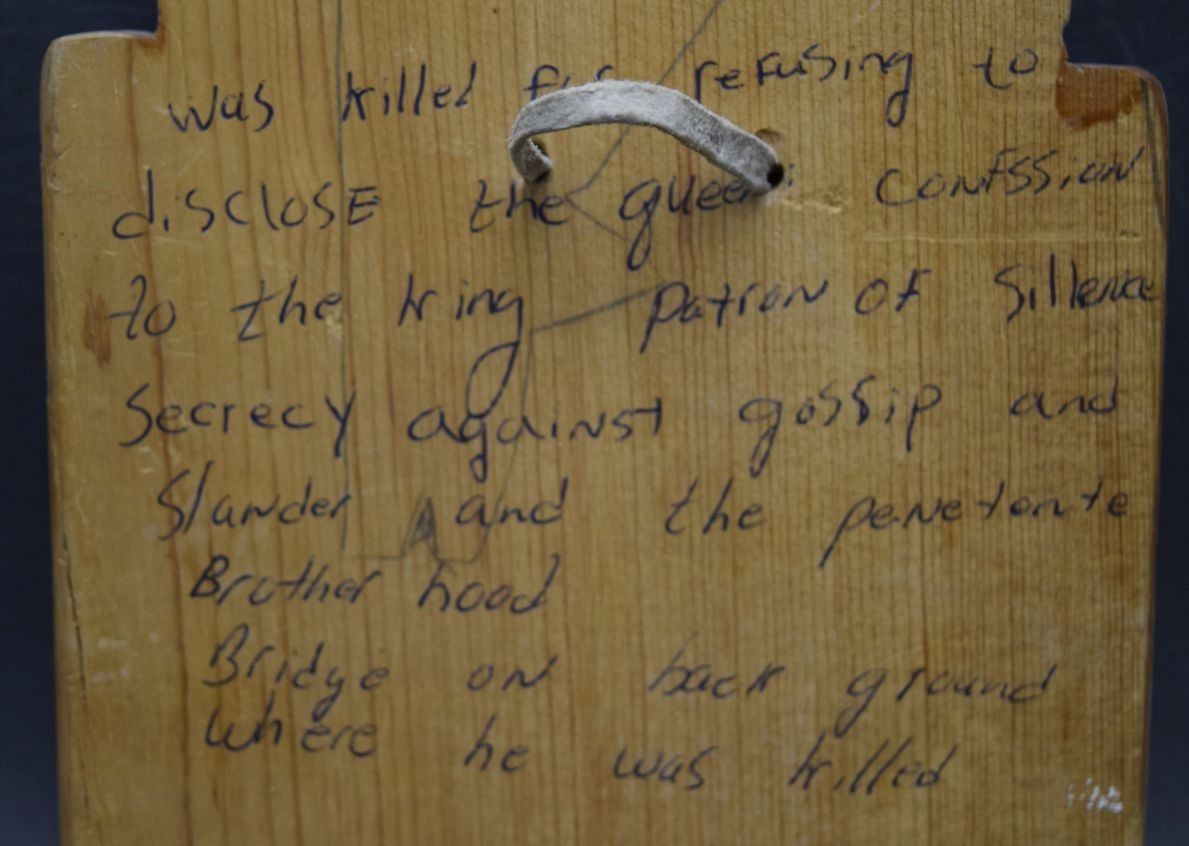 was killed for refusing to
disclose the queens confssion
to the king patron of sillence
secrecy against gossip and
slander and the penetente
Brother hood
Bridge on back ground
where he was killed